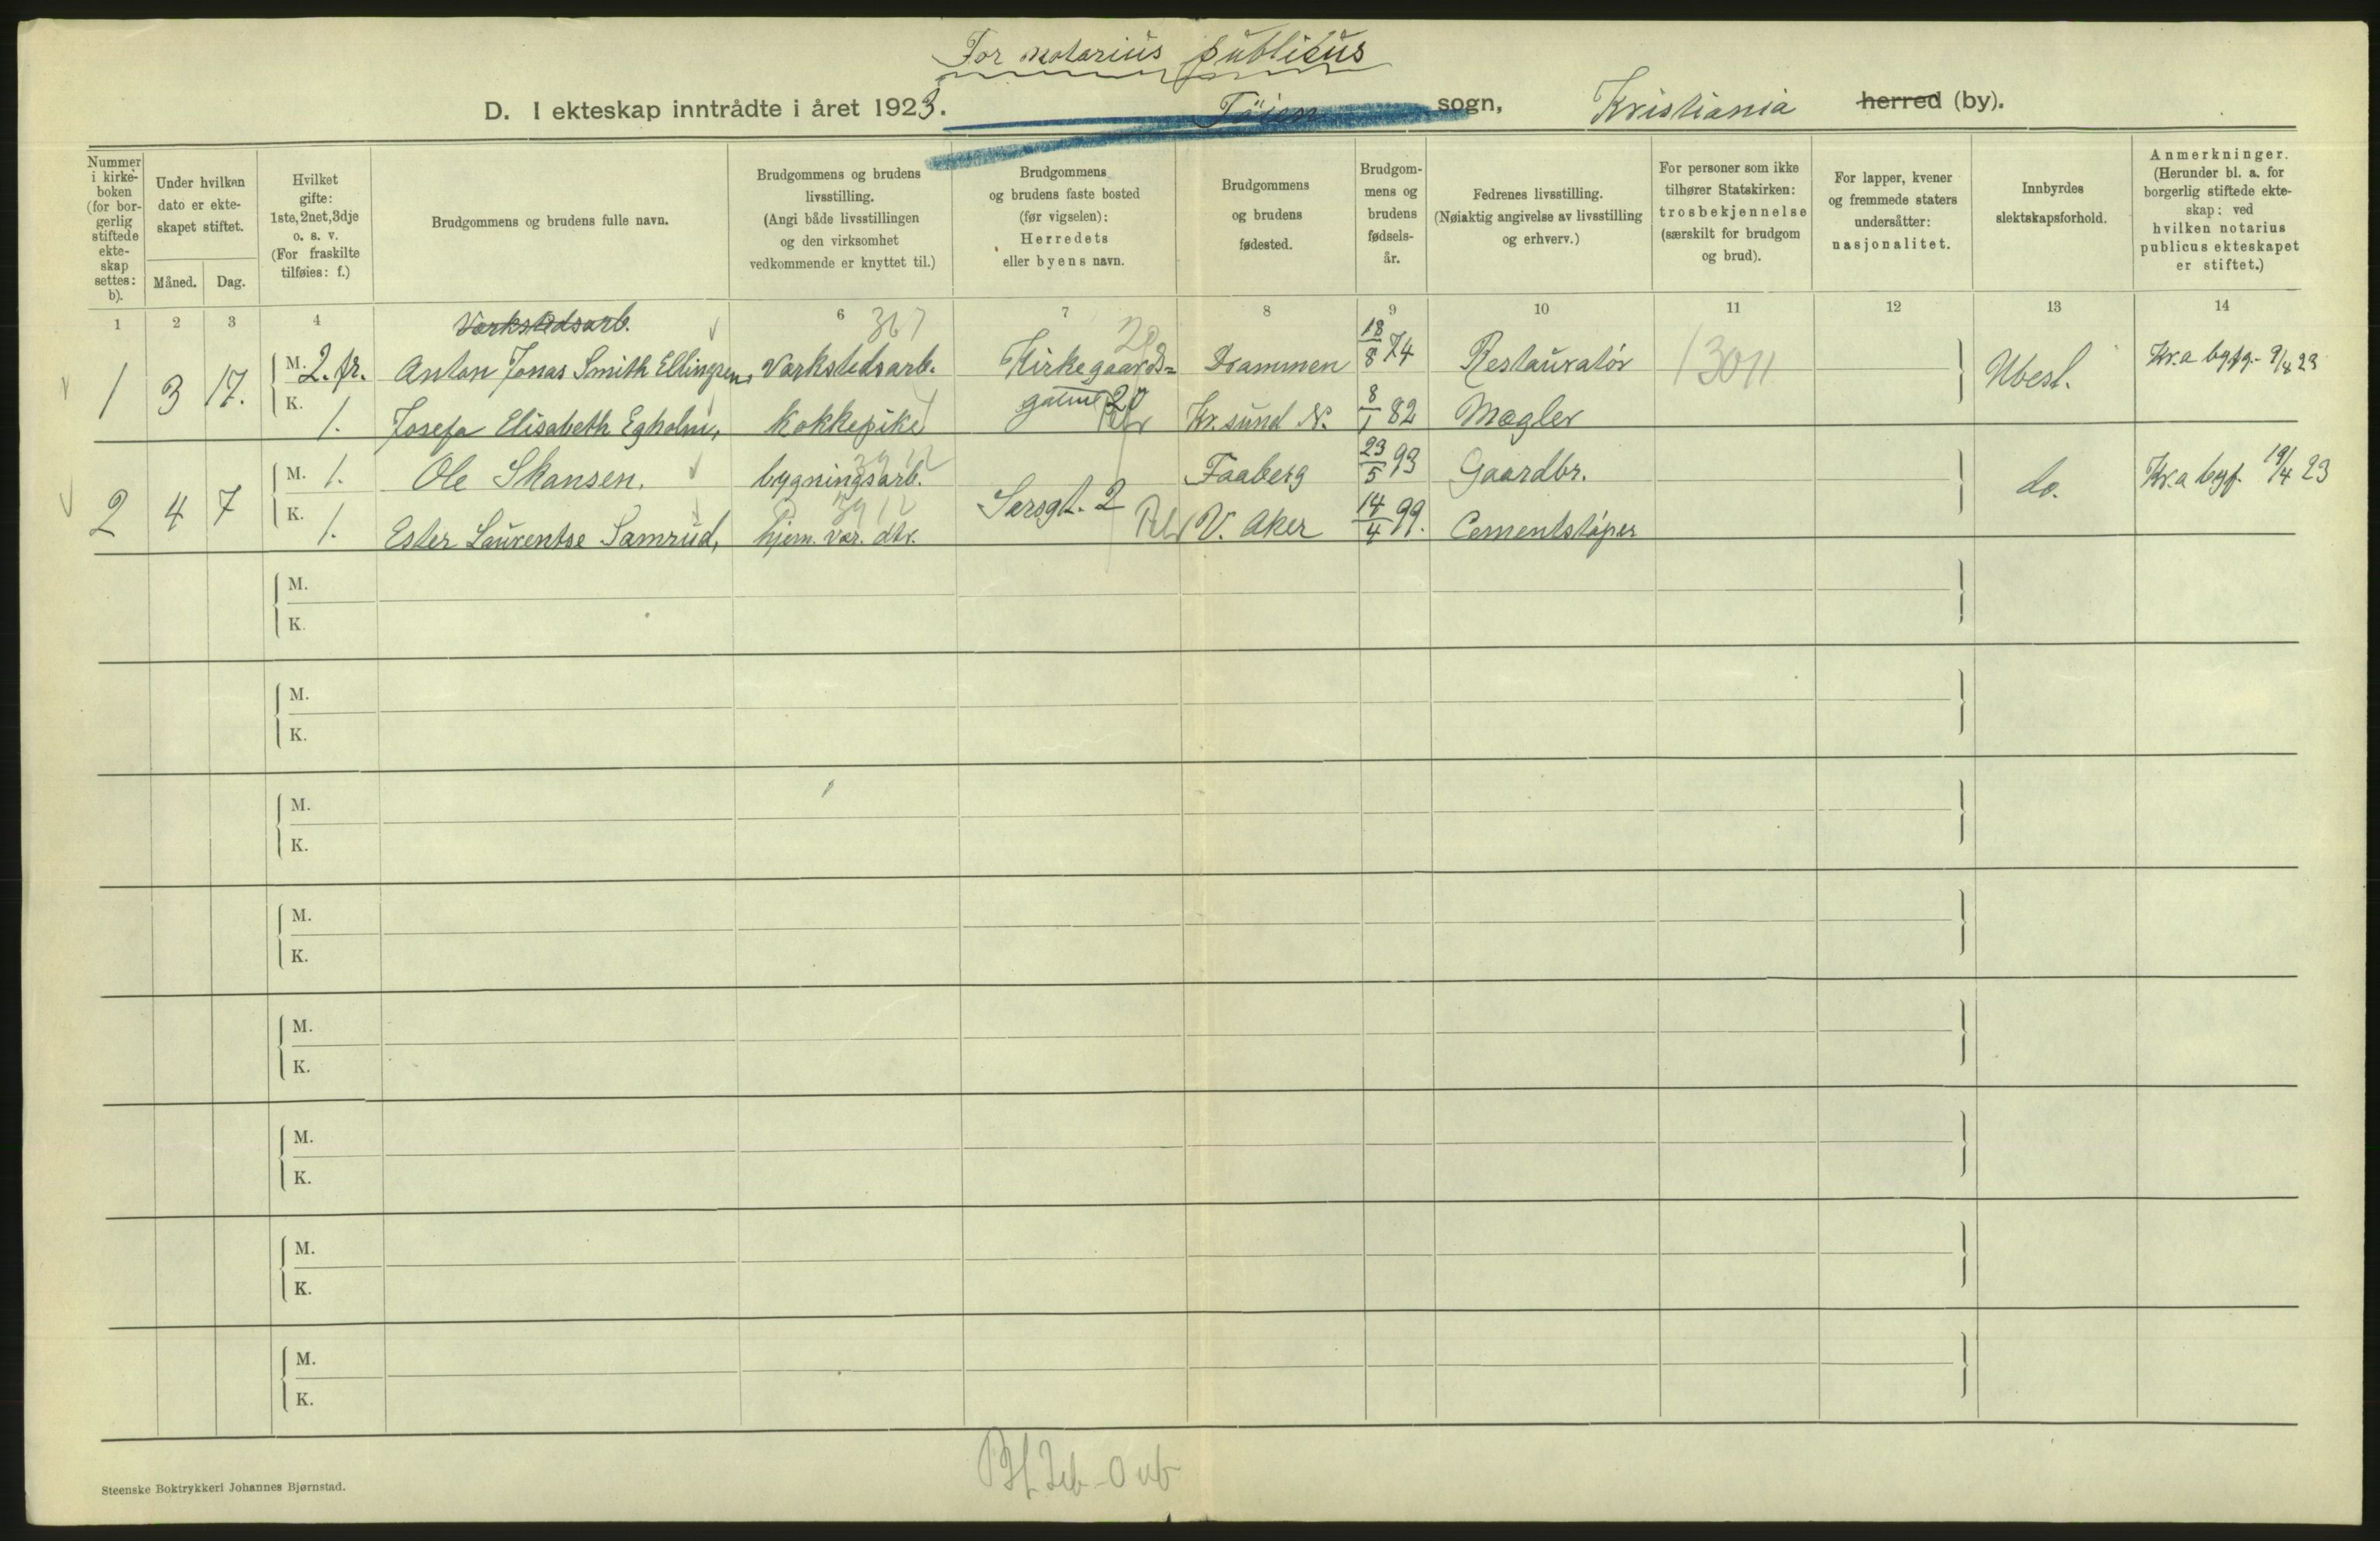 For notarius publicus
D. I ekteskap inntrådte i året 1923. Töien sogn, Kristiania herred (by).
Nummer i kirkeboken (for borgerlig stiftede ekteskap settes: b).
Under hvilken dato er ekteskapet stiftet.
Måned. Dag.
Hvilket gifte: 1ste, 2net, 3dje o. s. v. (For fraskilte tilføies: f.)
Brudgommens og brudens fulle navn.
Brudgommens og brudens livsstilling. (Angi både livsstillingen og den virksomhet vedkommende er knyttet til.)
Brudgommens og brudens faste bosted (før vigselen): Herredets eller byens navn.
Brudgommens og brudens fødested.
Brudgommens og brudens fødselsår.
Fedrenes livsstilling. (Nøiaktig angivelse av livsstilling og erhverv.)
For personer som ikke tilhører Statskirken: trosbekjennelse (særskilt for brudgom og brud).
For lapper, kvener og fremmede staters undersåtter: nasjonalitet.
Innbyrdes slektskapsforhold.
Anmerkninger. (Herunder bl. a. for borgerlig stiftede ekteskap: ved hvilken notarius publicus ekteskapet er stiftet.)
1 2 3 4 6 7 8 9 10 11 12 13 14
Værkstedsarb. 367
1 3 17. M. 2. fr. Anton Jonas Smith Ellingsen, Værkstedsarb. Kirkegaards= Drammen 18/8 74 Restauratör 13011 Ubesl. Kr.a bgfg. 9/4 23
K. 1. Josefa Elisabeth Egholm, Kokkepike gaten 20 Kr.sund N. 8/1 82 Mægler
2 4 7 M. 1. Ole Skansen. bygningsarb. Sarsgt. 2 Faaberg 23/5 93 Gaardbr. do. Kr.a bygf. 19/4 23
K. 1. Ester Laurentse Samrud, hjem. vær. dtr. V. Aker 14/4 99. Cementstöper
M.
K.
M.
K.
M.
K.
M.
K.
M.
K.
M.
K.
M.
K.
M.
K.
Steenske Boktrykkeri Johannes Bjørnstad.